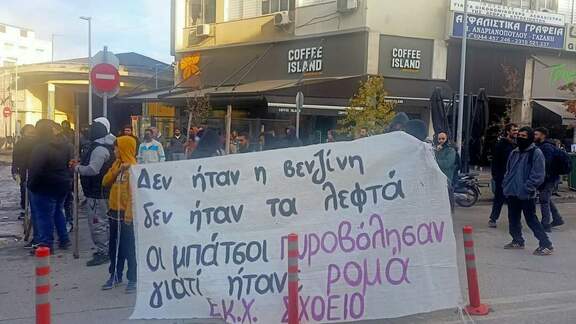 COFFEE
ISLAND
COFFEE
ISLAND
ΑΣΦΑΛΙΣΤΙΚΑ ΓΡΑΦΕΙΑ
Δεν ήταν η βενζίνη
δεν ήταν τα λεφτά
οι μπάτσοι πυροβόλησαν
γιατί ήταν ρομά
Σ.Κ.Χ. ΣΧΟΛΕΙΟ